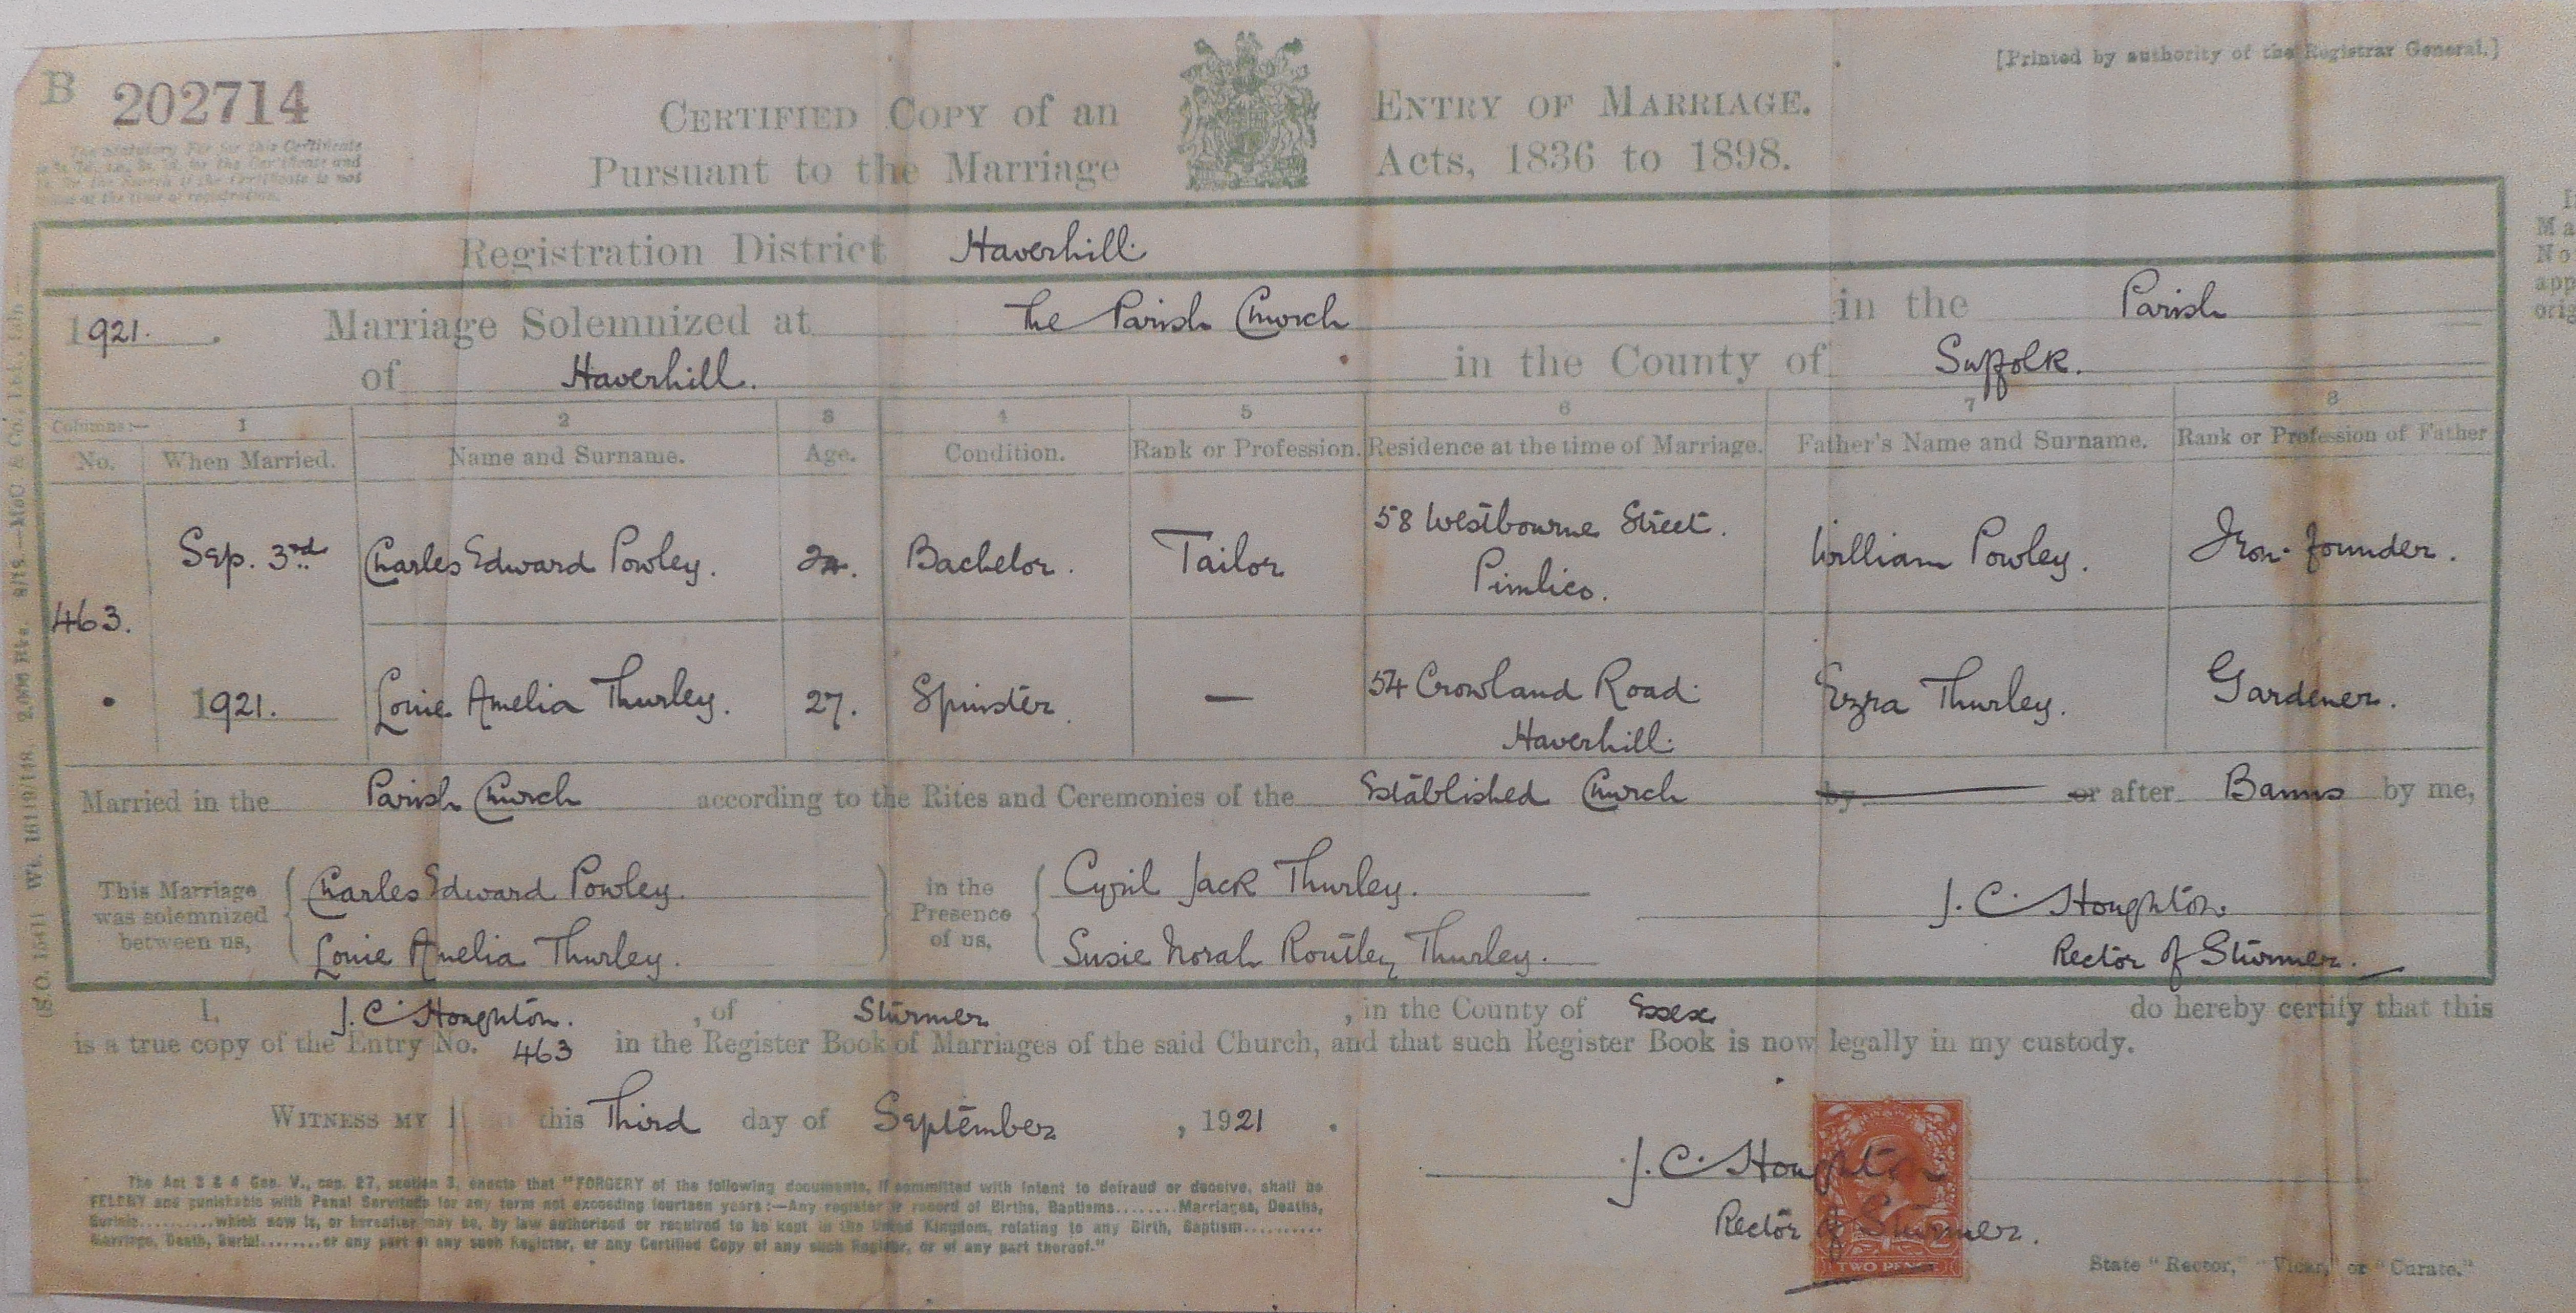 [Printed by authority of the Registrar General.]
B 202714
CERTIFIED COPY of an ENTRY OF MARRIAGE.
Pursuant to the Marriage Acts, 1836 to 1898.
The Statutory Fee for this Certificate
Registration District Haverhill.
1921. Marriage Solemnized at The Parish Church in the Parish
of Haverhill. in the County of Suffolk.
Columns:— 1 2 3 4 5 6 7 8
No. When Married. Name and Surname. Age. Condition. Rank or Profession. Residence at the time of Marriage. Father's Name and Surname. Rank or Profession of Father
463. Sep. 3rd Charles Edward Powley. Bachelor. Tailor 58 Westbourne Street. Pimlico. William Powley. Iron-founder.
1921. Louie Amelia Thurley. 27. Spinster. — 54 Crowland Road. Haverhill. Ezra Thurley. Gardener.
Married in the Parish Church according to the Rites and Ceremonies of the Established Church by or after Banns by me,
This Marriage was solemnized between us, Charles Edward Powley. in the Presence of us, Cyril Jack Thurley. J. C. Houghton
Louie Amelia Thurley. Susie Norah Routley Thurley. Rector of Sturmer.
I, J. C. Houghton. , of Sturmer , in the County of Essex do hereby certify that this
is a true copy of the Entry No. 463 in the Register Book of Marriages of the said Church, and that such Register Book is now legally in my custody.
WITNESS MY this Third day of September , 1921 .
J. C. Houghton
Rector of Sturmer.
TWO PENCE
The Act 3 & 4 Geo. V., cap. 27, section 3, enacts that "FORGERY of the following documents, if committed with intent to defraud or deceive, shall be
FELONY and punishable with Penal Servitude for any term not exceeding fourteen years:—Any register or record of Births, Baptisms........Marriages, Deaths,
Burials..........which now is, or hereafter may be, by law authorised or required to be kept in the United Kingdom, relating to any Birth, Baptism..........
Marriage, Death, Burial........or any part of any such Register, or any Certified Copy of any such Register, or of any part thereof."
State "Rector," "Vicar," or "Curate."